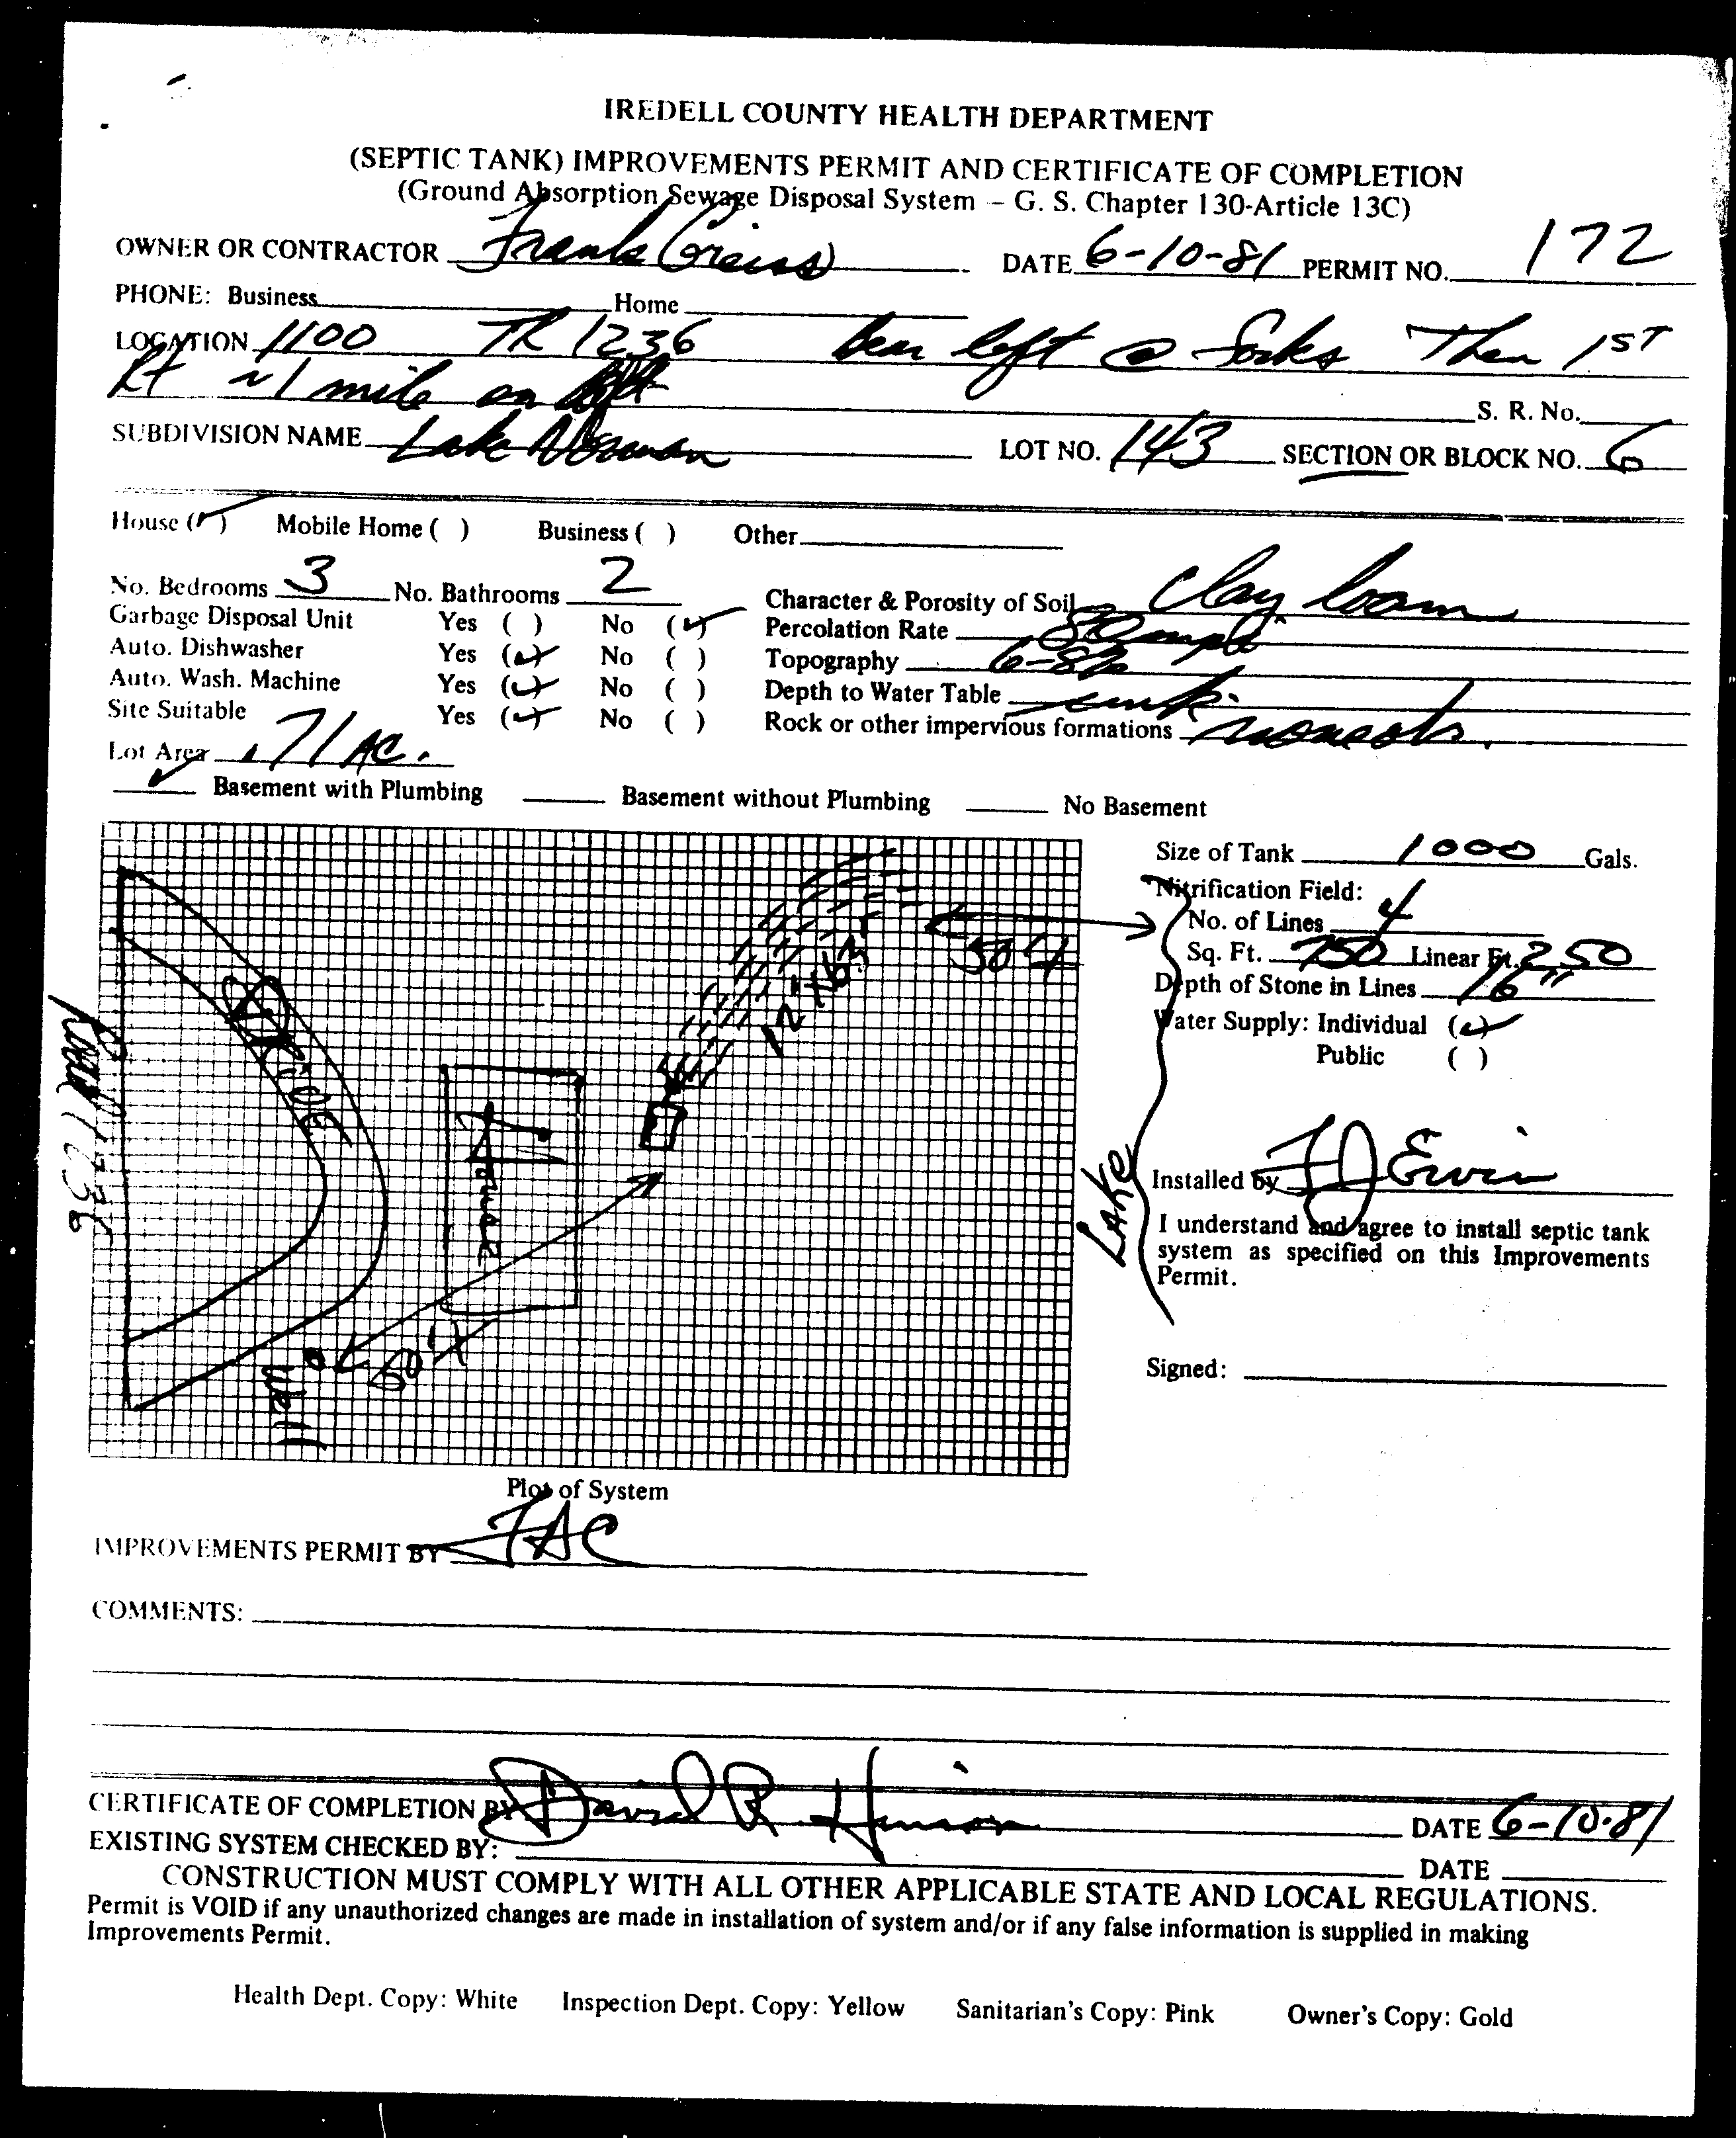 IREDELL COUNTY HEALTH DEPARTMENT
(SEPTIC TANK) IMPROVEMENTS PERMIT AND CERTIFICATE OF COMPLETION
(Ground Absorption Sewage Disposal System – G. S. Chapter 130-Article 13C)
OWNER OR CONTRACTOR Frank DATE 6-10-81 PERMIT NO. 172
PHONE: Business Home
LOCATION 1100 TR 1236 bear left @ forks Then 1ST
Rt ~1 mile on
S. R. No.
SUBDIVISION NAME Lake Norman LOT NO. 143 SECTION OR BLOCK NO. 6
House (✓) Mobile Home ( ) Business ( ) Other
No. Bedrooms 3 No. Bathrooms 2 Character & Porosity of Soil Clay loam
Garbage Disposal Unit Yes ( ) No (✓) Percolation Rate
Auto. Dishwasher Yes (✓) No ( ) Topography 6-8%
Auto. Wash. Machine Yes (✓) No ( ) Depth to Water Table unk.
Site Suitable Yes (✓) No ( ) Rock or other impervious formations none obs.
Lot Area .71 AC.
✓ Basement with Plumbing Basement without Plumbing No Basement
Size of Tank 1000 Gals.
Nitrification Field:
No. of Lines 4
Sq. Ft. 750 Linear Ft. 250
Depth of Stone in Lines 16"
Water Supply: Individual (✓)
Public ( )
Road 1236
DRIVE
House
Well
50'+
50'+
LAKE
Installed by FJ Ervin
I understand and agree to install septic tank
system as specified on this Improvements
Permit.
Signed:
Plot of System
IMPROVEMENTS PERMIT BY FAC
COMMENTS:
CERTIFICATE OF COMPLETION BY David R. Hinson DATE 6-10-81
EXISTING SYSTEM CHECKED BY: DATE
CONSTRUCTION MUST COMPLY WITH ALL OTHER APPLICABLE STATE AND LOCAL REGULATIONS.
Permit is VOID if any unauthorized changes are made in installation of system and/or if any false information is supplied in making
Improvements Permit.
Health Dept. Copy: White Inspection Dept. Copy: Yellow Sanitarian's Copy: Pink Owner's Copy: Gold